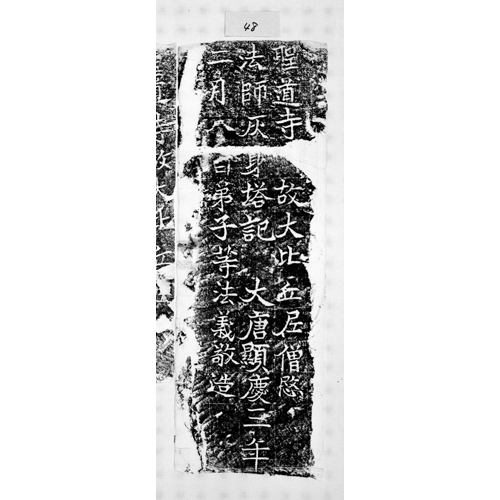 48
聖道寺 故大比丘尼僧愍
法師灰身塔記 大唐顯慶三年
二月八日弟子等法義敬造
道寺故大比丘